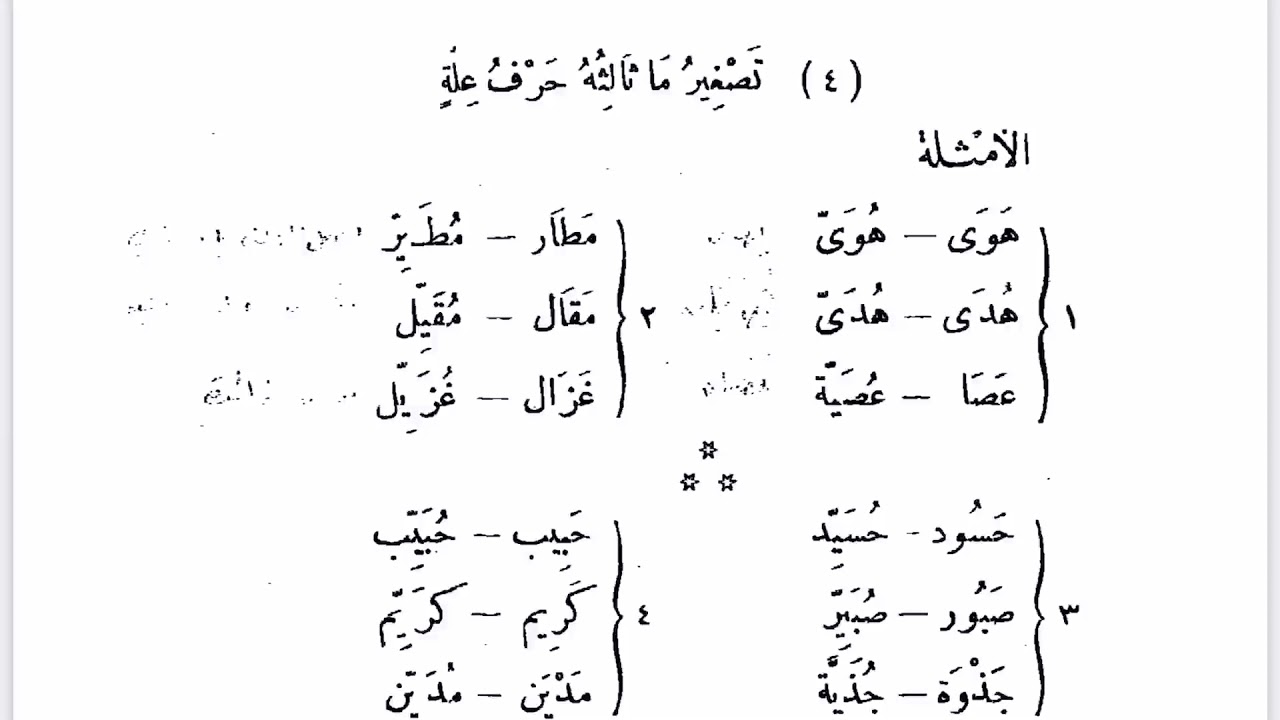 (٤) تَصْغِيرُ مَا ثَالِثُهُ حَرْفُ عِلَّةٍ
الأمْثلة
١
هَوَى — هُوَىّ
هُدَى — هُدَىّ
عَصَا — عُصَيَّة
٢
مَطَار — مُطَيِّر
مَقَال — مُقَيِّل
غَزَال — غُزَيِّل
٣
حَسُود - حُسَيِّد
صَبُور — صُبَيِّر
جَذْوَة — جُذَيَّة
٤
حَبِيب — حُبَيِّب
كَرِيم — كُرَيِّم
مَدْيَن — مُدَيِّن